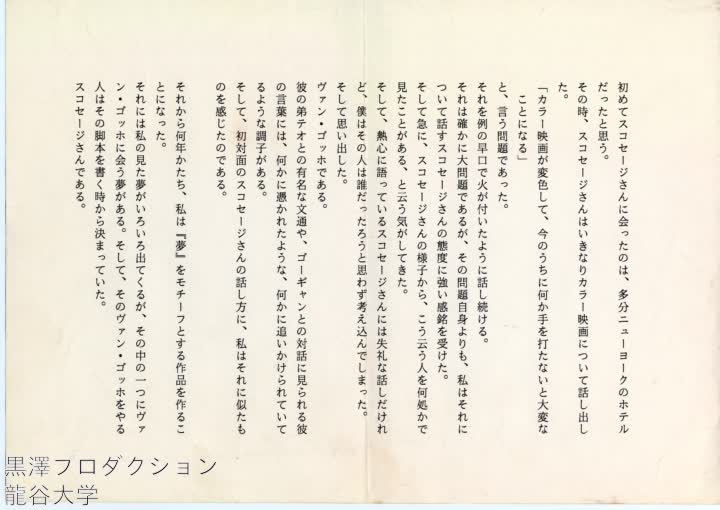 初めてスコセージさんに会ったのは、多分ニューヨークのホテル
だったと思う。
その時、スコセージさんはいきなりカラー映画について話し出し
た。
「カラー映画が変色して、今のうちに何か手を打たないと大変な
ことになる」
と、言う問題であった。
それを例の早口で火が付いたように話し続ける。
それは確かに大問題であるが、その問題自身よりも、私はそれに
ついて話すスコセージさんの態度に強い感銘を受けた。
そして急に、スコセージさんの様子から、こう云う人を何処かで
見たことがある、と云う気がしてきた。
そして、熱心に語っているスコセージさんには失礼な話しだけれ
ど、僕はその人は誰だったろうと思わず考え込んでしまった。
そして思い出した。
ヴァン・ゴッホである。
彼の弟テオとの有名な文通や、ゴーギャンとの対話に見られる彼
の言葉には、何かに憑かれたような、何かに追いかけられていて
るような調子がある。
そして、初対面のスコセージさんの話し方に、私はそれに似たも
のを感じたのである。
それから何年かたち、私は『夢』をモチーフとする作品を作るこ
とになった。
それには私の見た夢がいろいろ出てくるが、その中の一つにヴァ
ン・ゴッホに会う夢がある。そして、そのヴァン・ゴッホをやる
人はその脚本を書く時から決まっていた。
スコセージさんである。
黒澤プロダクション
龍谷大学